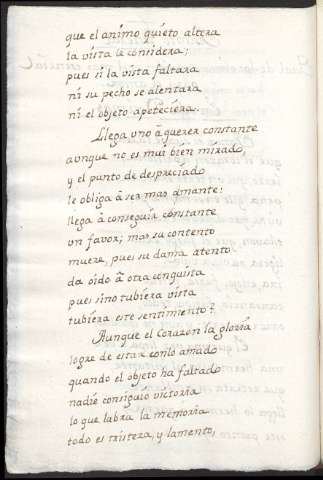 que el animo quieto altera
la vista le considera;
pues si la vista faltara
ni su pecho se alentara
ni el objeto apeteciera.
Llega uno à querer constante
aunque no es mui bien mirado,
y el punto de despreciado
le obliga à ser mas amante:
llega à conseguir constante
un favor; mas su contento
muera, pues su dama atento
da oido à otra conquista
pues sino tubiera vista
tubiera este sentimiento?
Aunque el Corazon la gloria
logre de estar con lo amado
quando el objeto ha faltado
nadie consiguio victoria
lo que labra la memoria
todo es tristeza, y lamento,